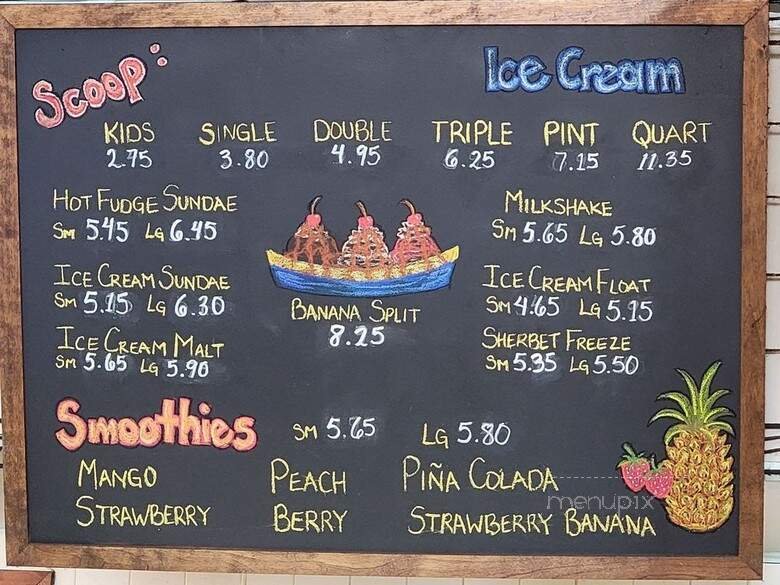 Scoop:
Ice Cream
KIDS SINGLE DOUBLE TRIPLE PINT QUART
2.75 3.80 4.95 6.25 7.15 11.35
HOT FUDGE SUNDAE
SM 5.45 LG 6.45
MILKSHAKE
SM 5.65 LG 5.80
ICE CREAM SUNDAE
SM 5.15 LG 6.30
BANANA SPLIT
8.25
ICE CREAM FLOAT
SM 4.65 LG 5.15
ICE CREAM MALT
SM 5.65 LG 5.90
SHERBET FREEZE
SM 5.35 LG 5.50
Smoothies SM 5.65 LG 5.80
MANGO PEACH PIÑA COLADA
STRAWBERRY BERRY STRAWBERRY BANANA
menupix